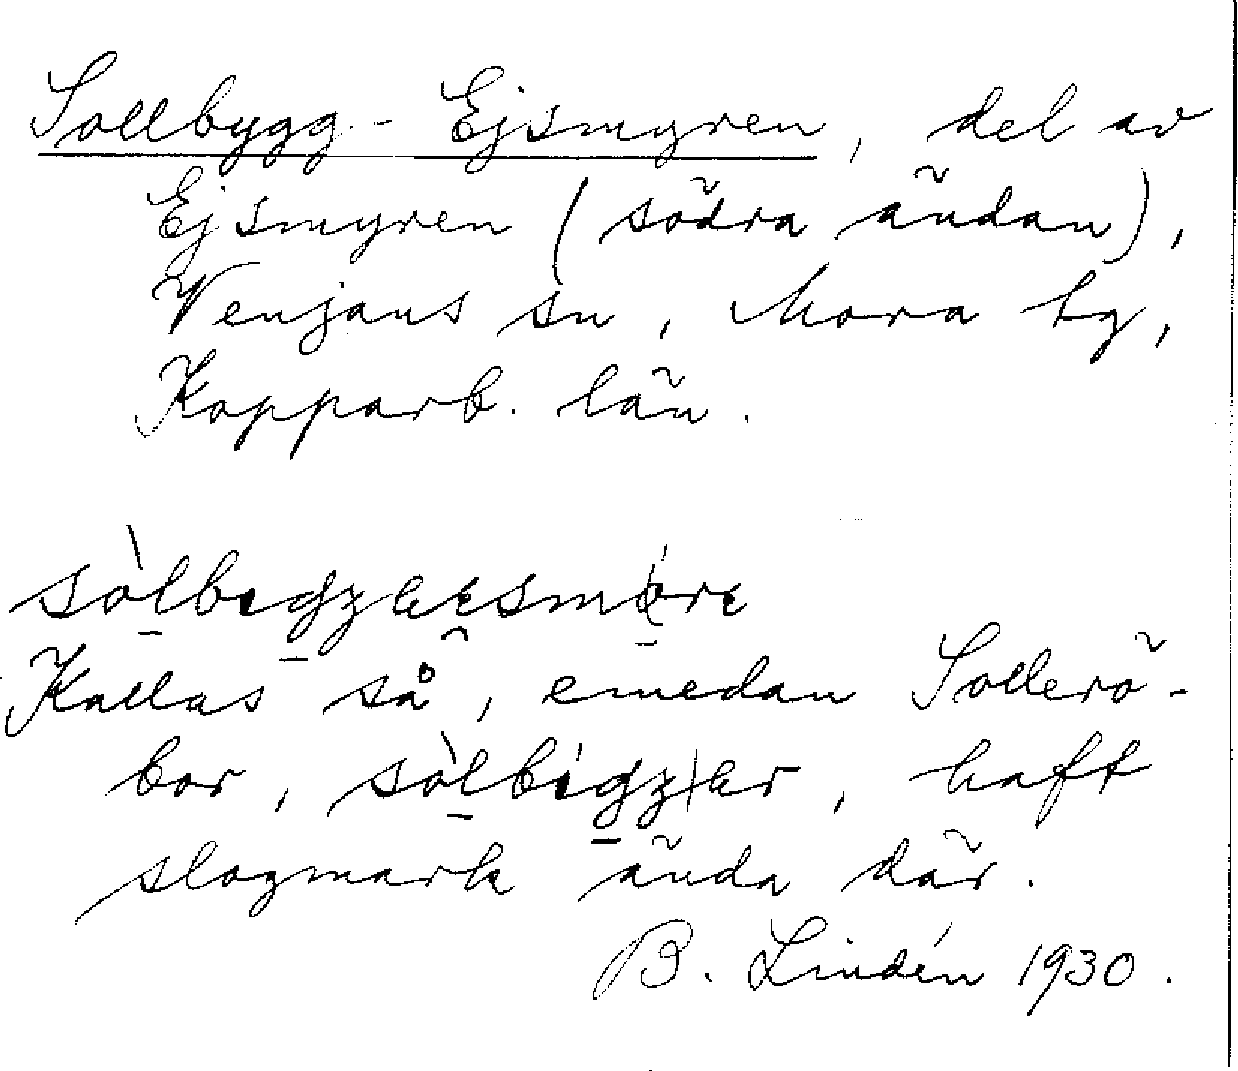 Sollbygg-Ejsmyren, del av
Ejsmyren (södra ändan),
Venjans sn, Mora tg,
Kopparb. län.
Kallas så, emedan Sollerö-
bor, haft
slogmark ända där.
B. Lindén 1930.